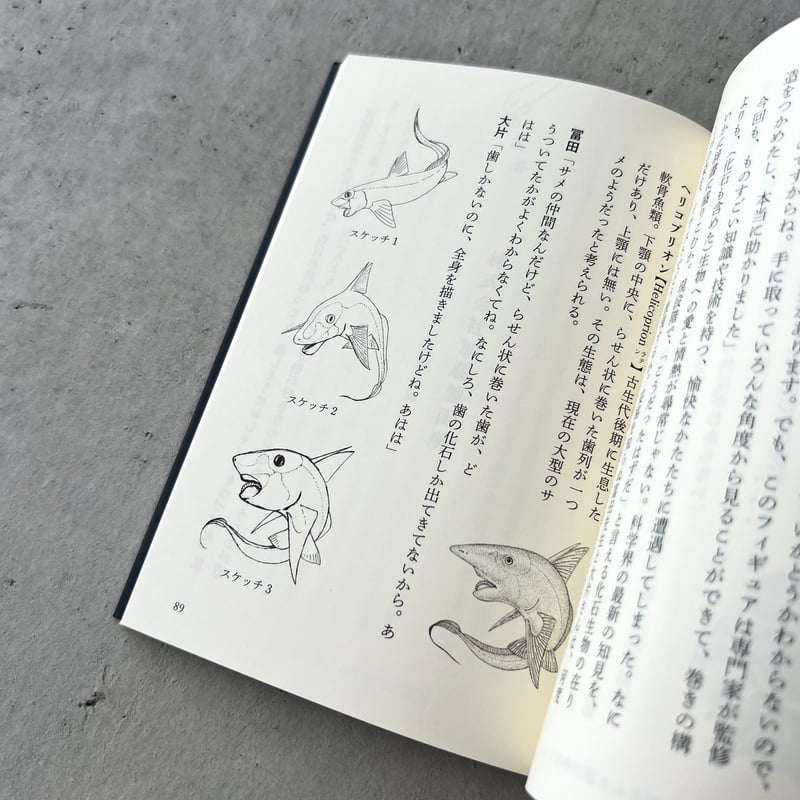 いかどうかわからないので、
あります。でも、このフィギュアは専門家が監修
ですからね。手に取っていろんな角度から見ることができて、巻きの構
造をつかめたし、本当に助かりました」
今回も、ものすごい知識や技術を持つ、愉快なかたたちに遭遇してしまった。なに
よりも、(化石も含めた)生物への愛と情熱が尋常じゃない。科学界の最新の知見を、
「こうだったはずだ」と言える化石生物の在り
ヘリコプリオン【Helicoprion ラテン】 古生代後期に生息した
軟骨魚類。下顎の中央に、らせん状に巻いた歯列が一つ
だけあり、上顎には無い。その生態は、現在の大型のサ
メのようだったと考えられる。
冨田「サメの仲間なんだけど、らせん状に巻いた歯が、ど
うついてたかがよくわからなくてね。なにしろ、歯の化石しか出てきてないから。あ
はは」
大片「歯しかないのに、全身を描きましたけどね。あはは」
スケッチ1
スケッチ2
スケッチ3
89